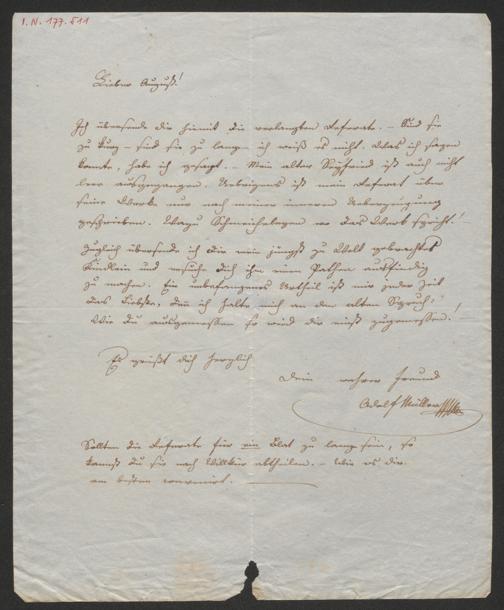 I. N. 177.511
Lieber August!
Ich übersende dir hiemit die verlangten Referate. – Sind sie
zu kurz – sind sie zu lang – ich weiß es nicht. Was ich sagen
konnte, habe ich gesagt. – Mein alter Siegfried ist auch nicht
leer ausgegangen. Uebrigens ist mein Referat über
seine Werke nur nach meiner inneren Ueberzeugung
geschrieben. Wozu Schmeicheleyen wo das Werk spricht!
Zugleich übersende ich dir mein jüngst zur Welt gebrachtes
Kindlein und ersuche dich ihm einen Pathen ausfindig
zu machen. Ein unbefangenes Urtheil ist mir jeder Zeit
das Liebste, denn ich halte mich an den alten Spruch:
Wie du ausgemessen so wird dir wieder zugemessen!
Es grüßt dich herzlich
Dein wahrer Freund
Adolf Müller
Sollten die Referate für ein Blat zu lang sein, so
kannst du sie nach Willkür abtheilen. – Wie es dir
am besten convenirt.